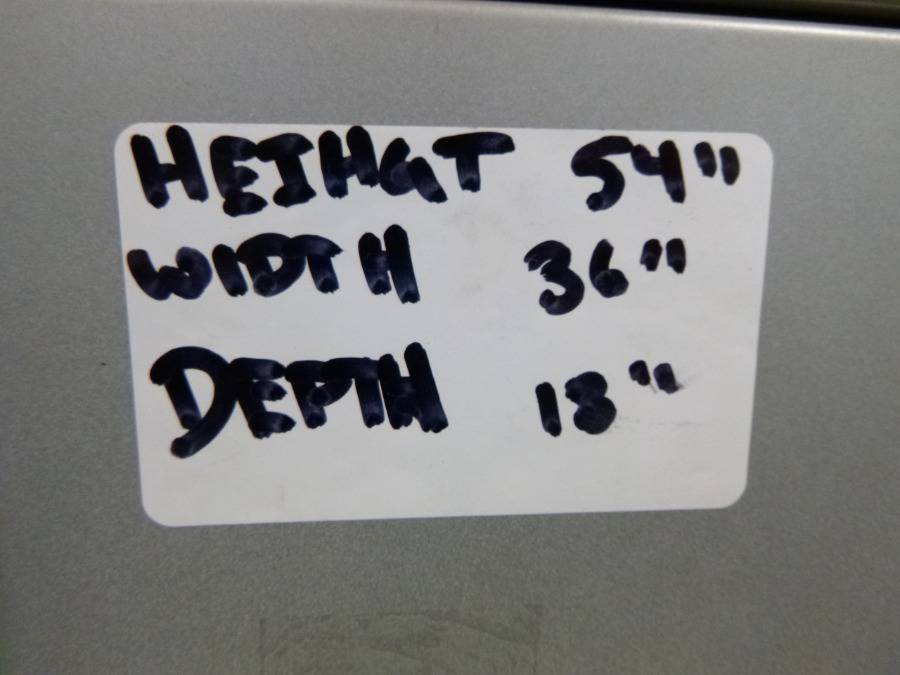 HEIHGT 54"
WIDTH 36"
DEPTH 18"